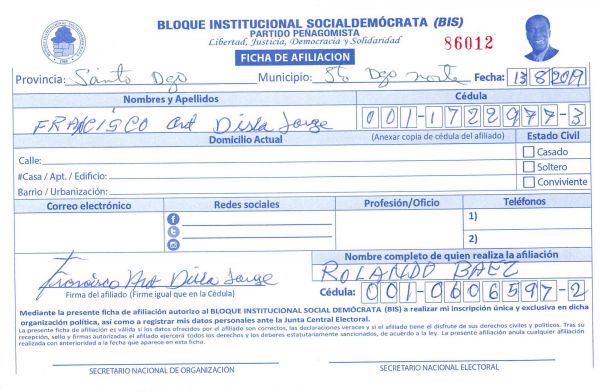 BLOQUE INSTITUCIONAL SOCIALDEMÓCRATA (BIS)
PARTIDO PEÑAGOMISTA
Libertad, Justicia, Democracia y Solidaridad
86012
FICHA DE AFILIACION
Provincia: Santo Dgo Municipio: Sto Dgo norte Fecha: 13 8 2019
Nombres y Apellidos Cédula
FRANCISCO Ant Disla Jorge 001-1722977-3
Domicilio Actual (Anexar copia de cédula del afiliado) Estado Civil
Calle: Casado
#Casa / Apt. / Edificio: Soltero
Barrio / Urbanización: Conviviente
Correo electrónico Redes sociales Profesión/Oficio Teléfonos
1)
2)
Francisco Ant Disla Jorge
Firma del afiliado (Firme igual que en la Cédula)
Nombre completo de quien realiza la afiliación
ROLANDO BAEZ
Cédula: 001-0606597-2
Mediante la presente ficha de afiliación autorizo al BLOQUE INSTITUCIONAL SOCIAL DEMÓCRATA (BIS) a realizar mi inscripción única y exclusiva en dicha
organización política, así como a registrar mis datos personales ante la Junta Central Electoral.
La presente ficha de afiliación es válida si los datos ofrecidos por el afiliado son correctos, las declaraciones veraces y si el afiliado tiene el disfrute de sus derechos civiles y políticos. Tras su
recepción, sello y firmas autorizadas el afiliado ejercerá todos los derechos y los deberes estatutariamente sancionados, de acuerdo a la ley. La presente afiliación anula cualquier afiliación
realizada con anterioridad a la fecha que aparece en esta ficha.
SECRETARIO NACIONAL DE ORGANIZACIÓN SECRETARIO NACIONAL ELECTORAL